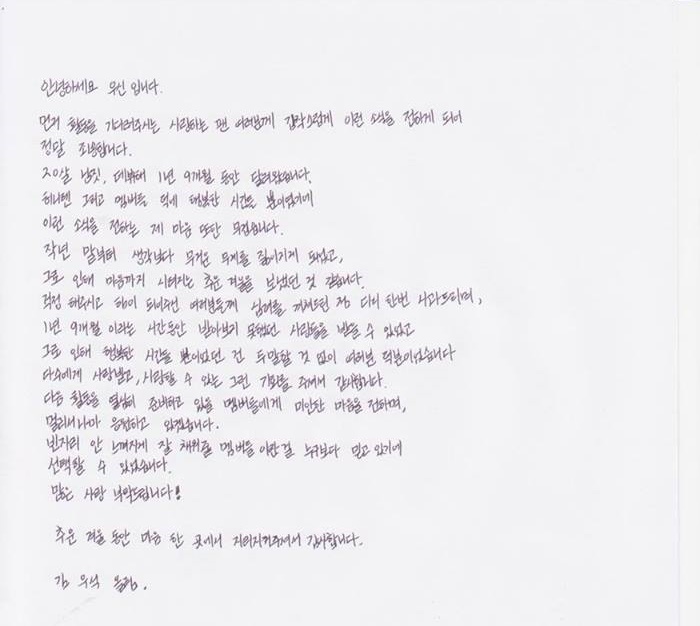 안녕하세요 우신 입니다.
먼저 활동을 기다려주시는 사랑하는 팬 여러분께 갑작스럽게 이런 소식을 전하게 되어
정말 죄송합니다.
20살 남짓, 데뷔해 1년 9개월 동안 달려왔습니다.
허니텐 그리고 멤버들 덕에 행복한 시간들 뿐이었기에
이런 소식을 전하는 제 마음 또한 무겁습니다.
작년 말부터 생각보다 무거운 무게를 짊어지게 돼었고,
그로 인해 마음까지 시려지는 추운 겨울을 보냈던 것 같습니다.
걱정 해주시고 힘이 되어주던 여러분들께 심려를 끼쳐드린 점 다시 한번 사과드리며,
1년 9개월 이라는 시간동안 받아보지 못했던 사랑들을 받을 수 있었고
그로 인해 행복한 시간들 뿐이었던 건 두말할 것 없이 여러분 덕분이었습니다
다수에게 사랑받고, 사랑할 수 있는 그런 기회를 주셔서 감사합니다.
다음 활동을 열심히 준비하고 있을 멤버들에게 미안한 마음을 전하며,
멀리서나마 응원하고 있겠습니다.
빈자리 안 느껴지게 잘 채워줄 멤버들 이란걸 누구보다 믿고 있기에
선택할 수 있었습니다.
많은 사랑 부탁드립니다!
추운 겨울 동안 마음 한 곳에서 자리지켜주셔서 감사합니다.
김 우석 올림.